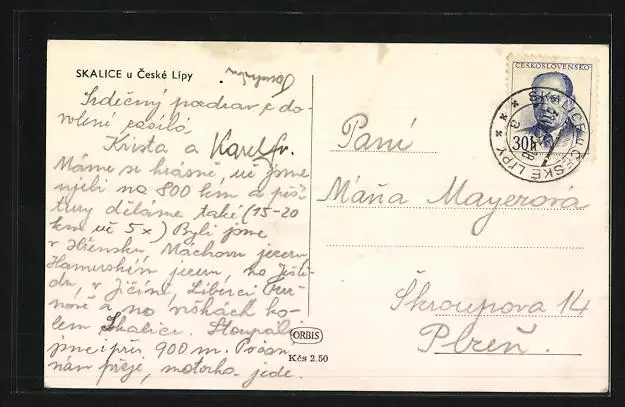 SKALICE u České Lípy
Srdečný pozdrav z do-
volené zasílá
Krista a Karel fr.
Máme se krásně, už jsme
ujeli na 800 km a pěší
túry děláme také (15-20
km už 5x) Byli jsme
v Hřensku, Máchovu jezeru,
Hamerským jezeru, na Ješt-
ědu, v Jičíně, Liberci
a na vrškách ko-
lem Skalice. Stoupali
jsme i přes 900 m. Počasí
nám přeje, motorka jede.
ORBIS
Kčs 2.50
ČESKOSLOVENSKO
30h
SKALICE u ČESKÉ LÍPY
Paní
Máňa Mayerová
Škroupova 14
Plzeň.